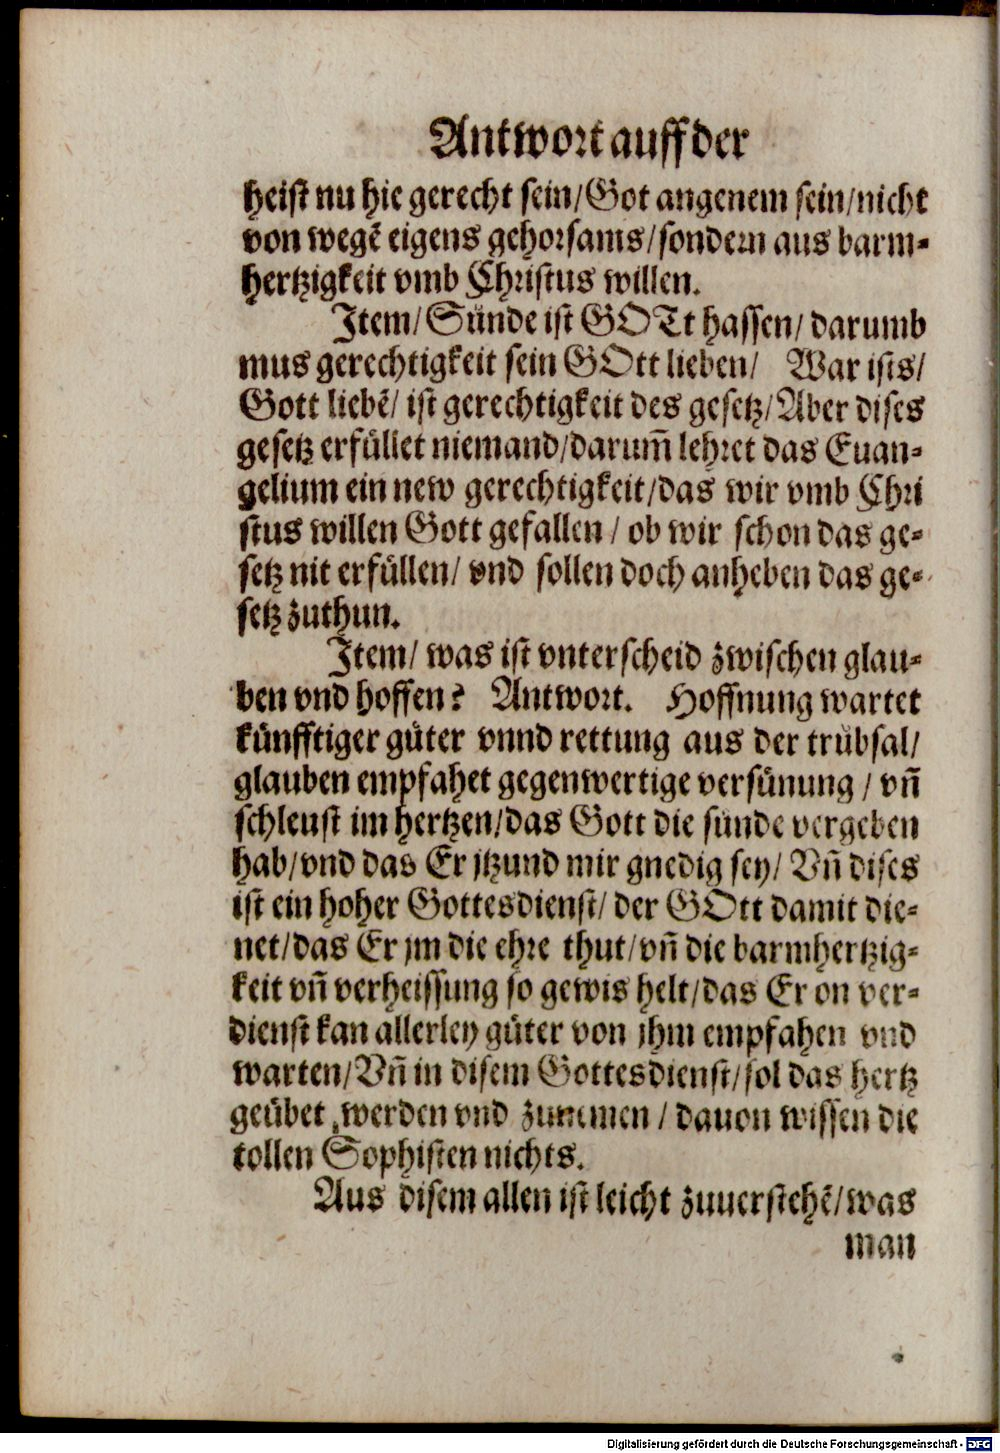 Antwort auff der
heist nu hie gerecht sein/Got angenem sein/nicht
von wegē eigens gehorsams/sondern aus barm-
hertzigkeit vmb Christus willen.
Item/ Sünde ist GOTt hassen/ darumb
mus gerechtigkeit sein GOtt lieben/ War ists/
Gott liebē/ ist gerechtigkeit des gesetz/Aber dises
gesetz erfüllet niemand/darum̄ lehret das Euan-
gelium ein new gerechtigkeit/das wir vmb Chri
stus willen Gott gefallen / ob wir schon das ge-
setz nit erfüllen/ vnd sollen doch anheben das ge-
setz zuthun.
Item/ was ist vnterscheid zwischen glau-
ben vnd hoffen? Antwort. Hoffnung wartet
künfftiger güter vnnd rettung aus der trübsal/
glauben empfahet gegenwertige versünung / vn̄
schleust im hertzen/das Gott die sünde vergeben
hab/vnd das Er jtzund mir gnedig sey/ Vn̄ dises
ist ein hoher Gottesdienst/ der GOtt damit die-
net/das Er jm die ehre thut/vn̄ die barmhertzig-
keit vn̄ verheissung so gewis helt/das Er on ver-
dienst kan allerley güter von jhm empfahen vnd
warten/Vn̄ in disem Gottesdienst/sol das hertz
geübet werden vnd zunemen / dauon wissen die
tollen Sophisten nichts.
Aus disem allen ist leicht zuuerstehē/was
man
Digitalisierung gefördert durch die Deutsche Forschungsgemeinschaft - DFG